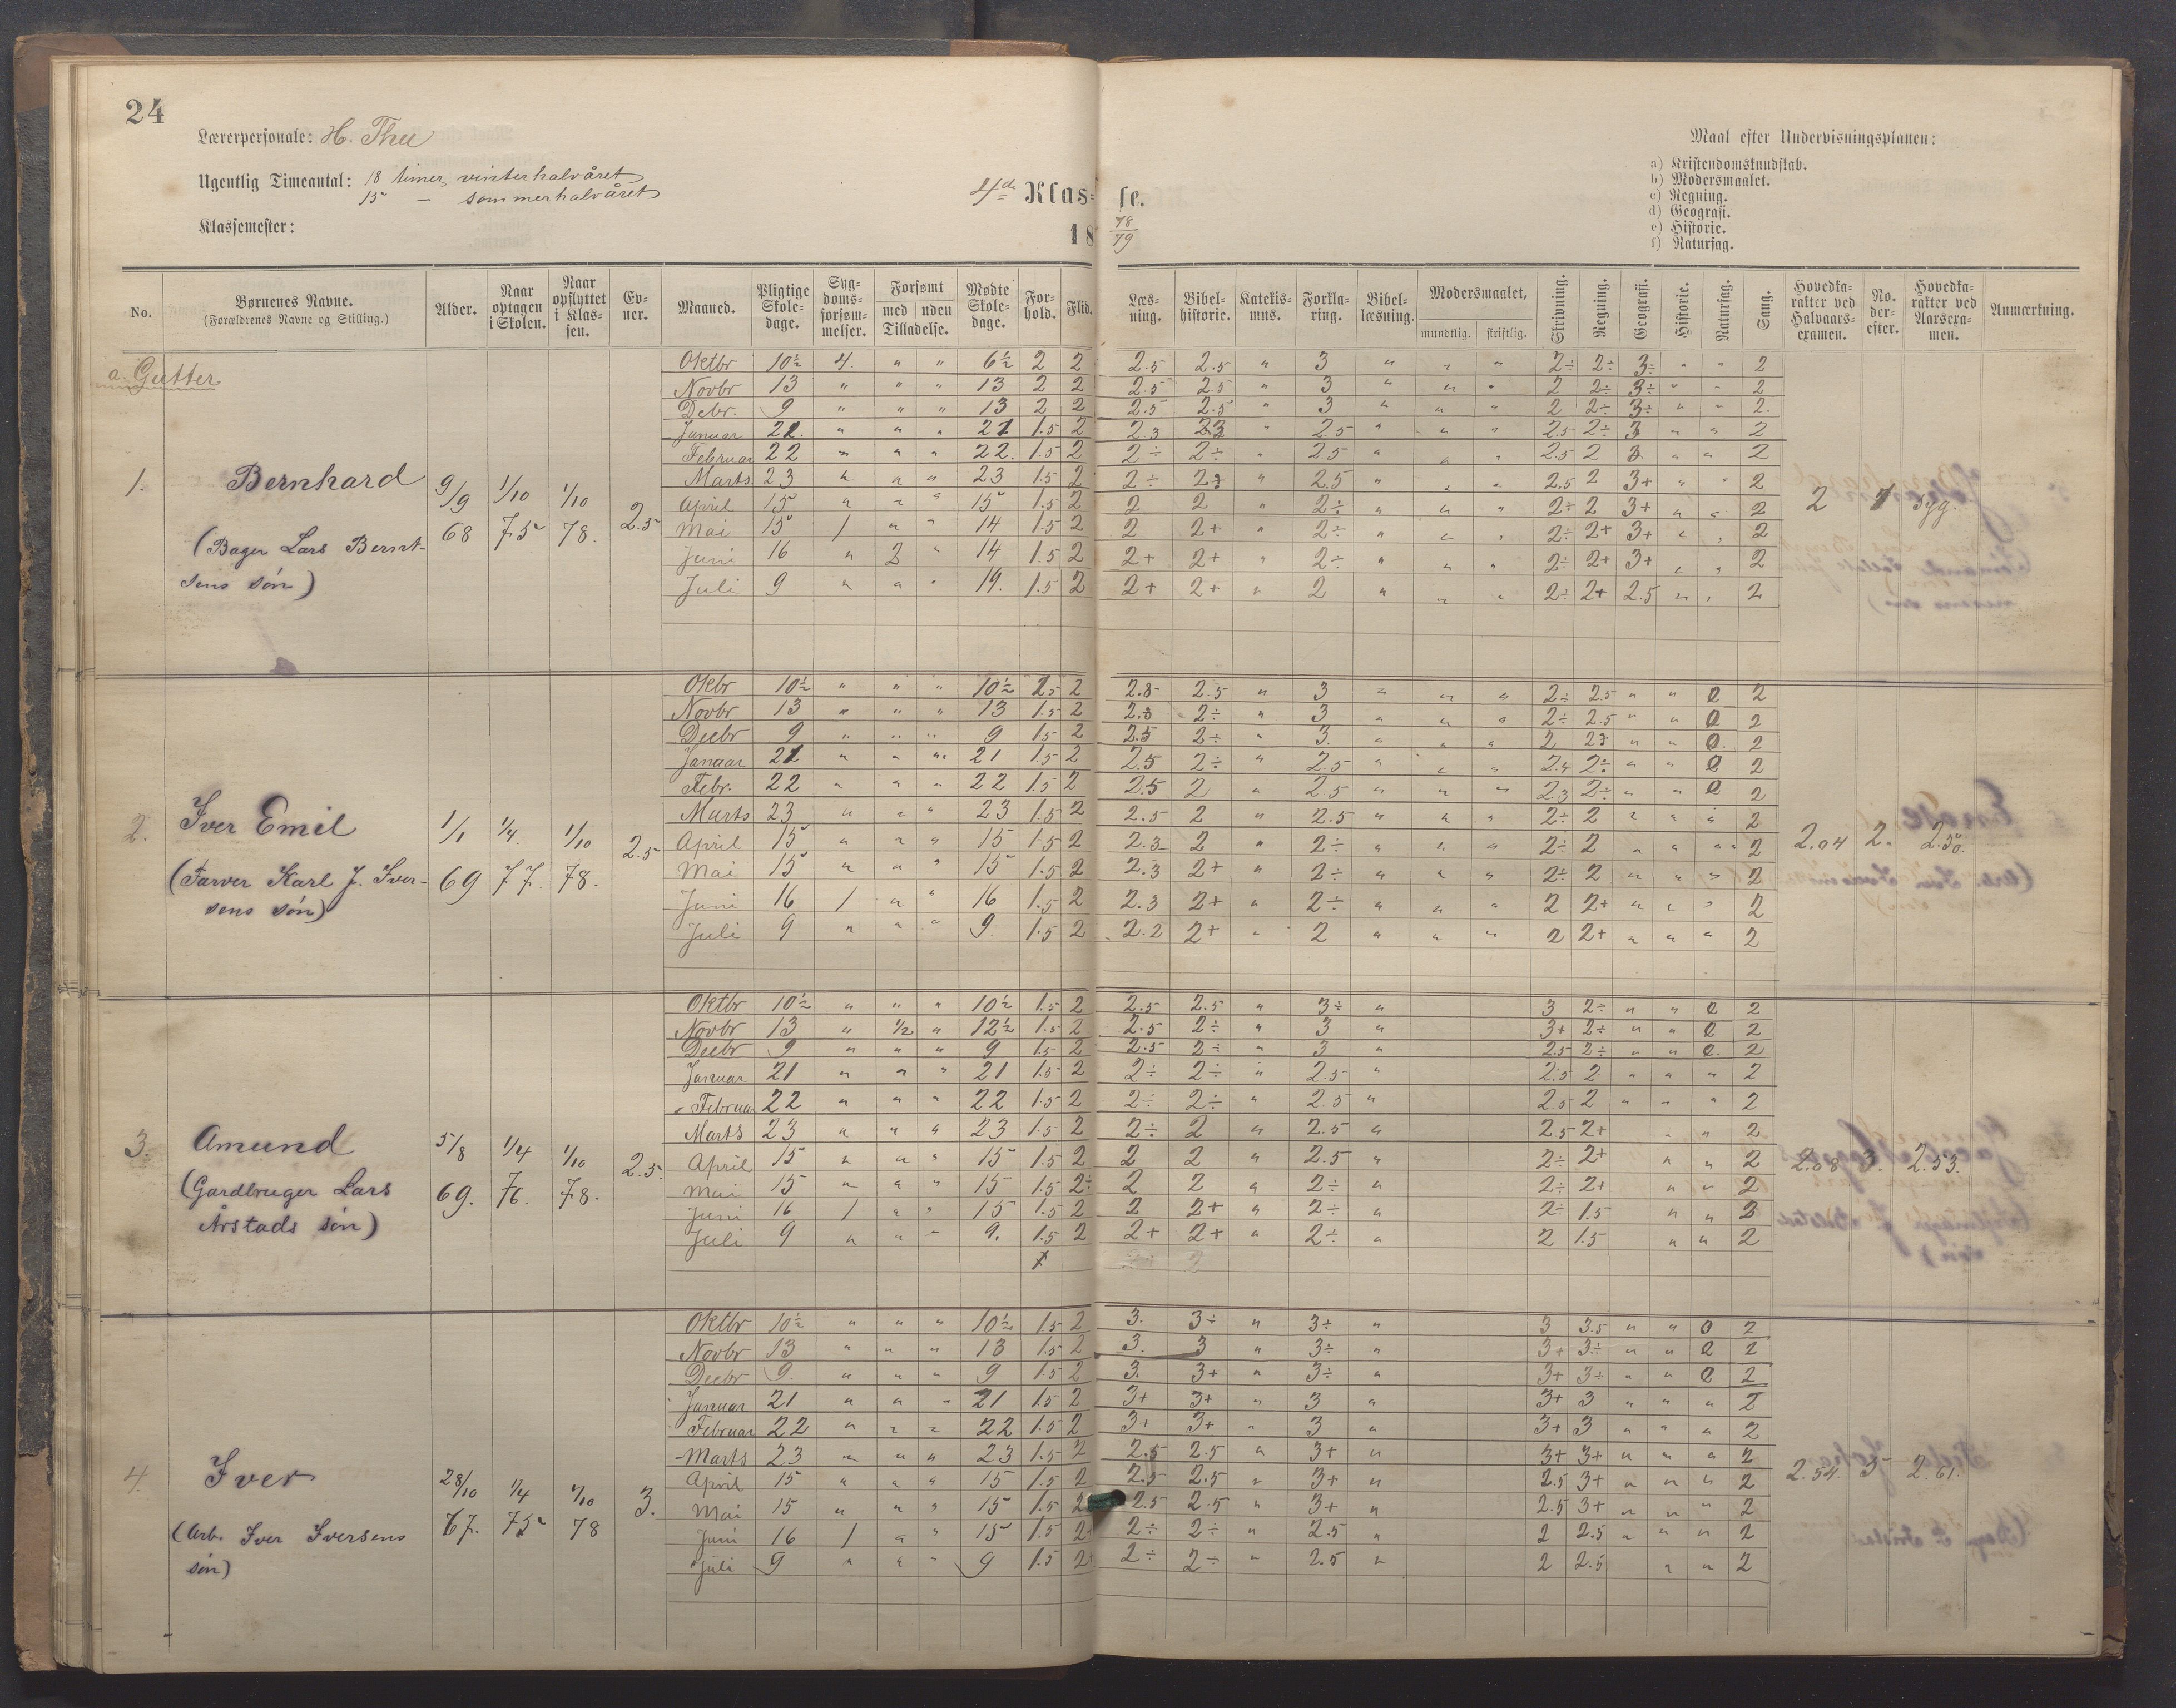 24
Lærerpersonale: H. Thu
Ugentlig Timeantal: 18 timer, vinterhalvåret
15 — sommerhalvåret
Klassemester:
4de Klas= se.
18 78/79
Maal efter Undervisningsplanen:
a) Kristendomskundskab.
b) Modersmaalet.
c) Regning.
d) Geografi.
e) Historie.
f) Naturfag.
No. | Børnenes Navne. (Forældrenes Navne og Stilling.) | Alder. | Naar optagen i Skolen. | Naar opflyttet i Klas-sen. | Ev-ner. | Maaned. | Pligtige Skole-dage. | Syg-doms-forsøm-melser. | Forsømt med uden Tilladelse. | Mødte Skole-dage. | For-hold. | Flid. | Læs-ning. | Bibel-historie. | Katekis-mus. | Forkla-ring. | Bibel-læsning. | Modersmaalet, mundtlig. skriftlig. | Skrivning. | Regning. | Geografi. | Historie. | Naturfag. | Sang. | Hovedka-rakter ved Halvaars-examen. | No. der-efter. | Hovedka-rakter ved Aarsexa-men. | Anmærkning.
a. Gutter
Oktbr 10½ 4. " " 6½ 2 2 2.5 2.5 " 3 " " " 2÷ 2÷ 3÷ " " 2
Novbr 13 " " " 13 2 2 2.5 2.5 " 3 " " " 2 2÷ 3÷ " " 2
Debr. 9 " " " 13 2 2 2.5 2.5 " 3 " " " 2 2÷ 3÷ " " 2.
Januar 21. " " " 21 1.5 2 2.3 2.3 " 2.5 " " " 2.5 2÷ 3 " " 2
Februar 22 " " " 22. 1.5 2 2÷ 2÷ " 2.5 " " " 2.5 2 3. " " 2
Marts. 23 " " " 23 1.5 2 2÷ " 2.5 " " " 2.5 2 3+ " " 2
April 15 " " " 15 1.5 2 2 2 " 2÷ " " " 2÷ 2 3+ " " 2
Mai 15 1 " " 14 1.5 2 2 2+ " 2÷ " " " 2÷ 2+ 3+ " " 2
Juni 16 " 2 " 14 1.5 2 2+ 2+ " 2÷ " " " 2÷ 2+ 3+ " " 2
Juli 9 " " " 19. 1.5 2 2+ 2+ " 2 " " " 2÷ 2+ 2.5 " " 2
1. Bernhard 9/9 68 1/10 75 1/10 78. 2.5 2 1 syg.
(Bager Lars Bernt-
sens søn)
Oktbr 10½ " " " 10½ 2 2.5 " 3 " " " 2÷ 2.5 " " 0 2
Novbr 13 " " " 13 1.5 2 2÷ " 3 " " " 2÷ 2.5 " " 0 2
Decbr 9 " " " 9 1.5 2 2.5 2÷ " 3. " " " 2 " " 0. 2
Januar 21 " " " 21 1.5 2 2.5 2÷ " 2.5 " " " 2.4 2÷ " " 0 2
Febr. 22 " " " 22 1.5 2 2.5 2 " 2.5 " " " 2.3 2÷ " " 0 2
Marts 23 " " " 23 1.5 2 2.5 2 " 2.5 " " " 2÷ 2 " " " 2
April 15 " " " 15 1.5 2 2.3 2 " 2÷ " " " 2÷ 2 " " " 2
Mai 15 " " " 15 1.5 2 2.3 2+ " 2÷ " " " 2÷ 2 " " " 2
Juni 16 1 " " 16 1.5 2 2.3 2+ " 2÷ " " " 2 2+ " " " 2
Juli 9 " " " 9. 1.5 2 2.2 2+ " 2 " " " 2 2+ " " " 2
2. Iver Emil 1/1 69 1/4. 77. 1/10 78. 2.5 2.04 2. 2.50.
(Farver Karl J. Iver-
sens søn)
Oktbr 10½ " " " 10½ 1.5 2 2.5 2.5 " 3÷ " 3 2÷ " " 0 2
Novbr 13 " ½ " 12½ 1.5 2 2.5 2÷ " 3 " 3+ 2÷ " " 0 2
Decbr 9 " " " 9 1.5 2 2.5 2÷ " 3 " 2.5 2÷ " " 0. 2
Januar 21 " " " 21 1.5 2 2÷ 2÷ " 2.5 " 2.5 2 " " " 2
Februar 22 " " " 22 1.5 2 2÷ 2÷ " 2.5 " 2.5 2 " " " 2
Marts 23 " " " 23 1.5 2 2÷ 2 " 2.5 " 2.5 2+ " " 2
April 15 " " " 15 1.5 2 2 2 " 2.5 " 2÷ 2+ " " 2
Mai 15 " " " 15 1.5 2÷ 2 2 " 2÷ " 2÷ 2+ " " 2
Juni 16 1 " " 15 1.5 2 2 2+ " 2÷ " 2÷ 1.5 " " 2
Juli 9 " " " 9. 1.5 2 2+ 2+ " 2÷ " 2 1.5 " " 2
3. Amund 5/8 69. 1/4 76. 1/10 78. 2.5. 2.08 3. 2.53.
(Gardbruger Lars
Årstads søn)
Oktbr 10½ " " " 10½ 1.5 2 3. 3÷ " 3÷ " 3 3.5 " " 0 2
Novbr 13 " " " 13 1.5 2 3. 3 " 3÷ " 3+ 3÷ " " 0 2
Decbr 9. " " " 9 1.5 2 3. 3+ " 3÷ " 3+ 3÷ " " 0 2
Januar 21 " " " 21 1.5 2 3+ 3+ " 3 " 3+ 3 " " " 2
Februar 22 " " " 22 1.5 2 3+ 3+ " 3 " 3+ 3 " " " 2
Marts 23 " " " 23 1.5 2 2.5 2.5 " 3+ " 3+ 3+ " " " 2
April 15 " " " 15 1.5 2 2.5 2.5 " 3+ " 2.5 3+ " " " 2
Mai 15 " " " 15 1.5 2 2.5 2.5 " 3+ " 2.5 3+ " " " 2
Juni 16 1 " " 15 1.5 2 2÷ 2÷ " 2.5 " 2 2.5 " " " 2
Juli 9 " " " 9 1.5 2 2÷ 2÷ " 2.5 " 2 2.5 " " 2
4. Iver 28/10 67. 1/4 75 1/10 78 3. 2.54. 5 2.61.
(Arb. Iver Iversens
søn)